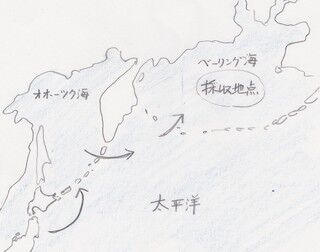 ベーリング海
オホーツク海
採収地点
太平洋